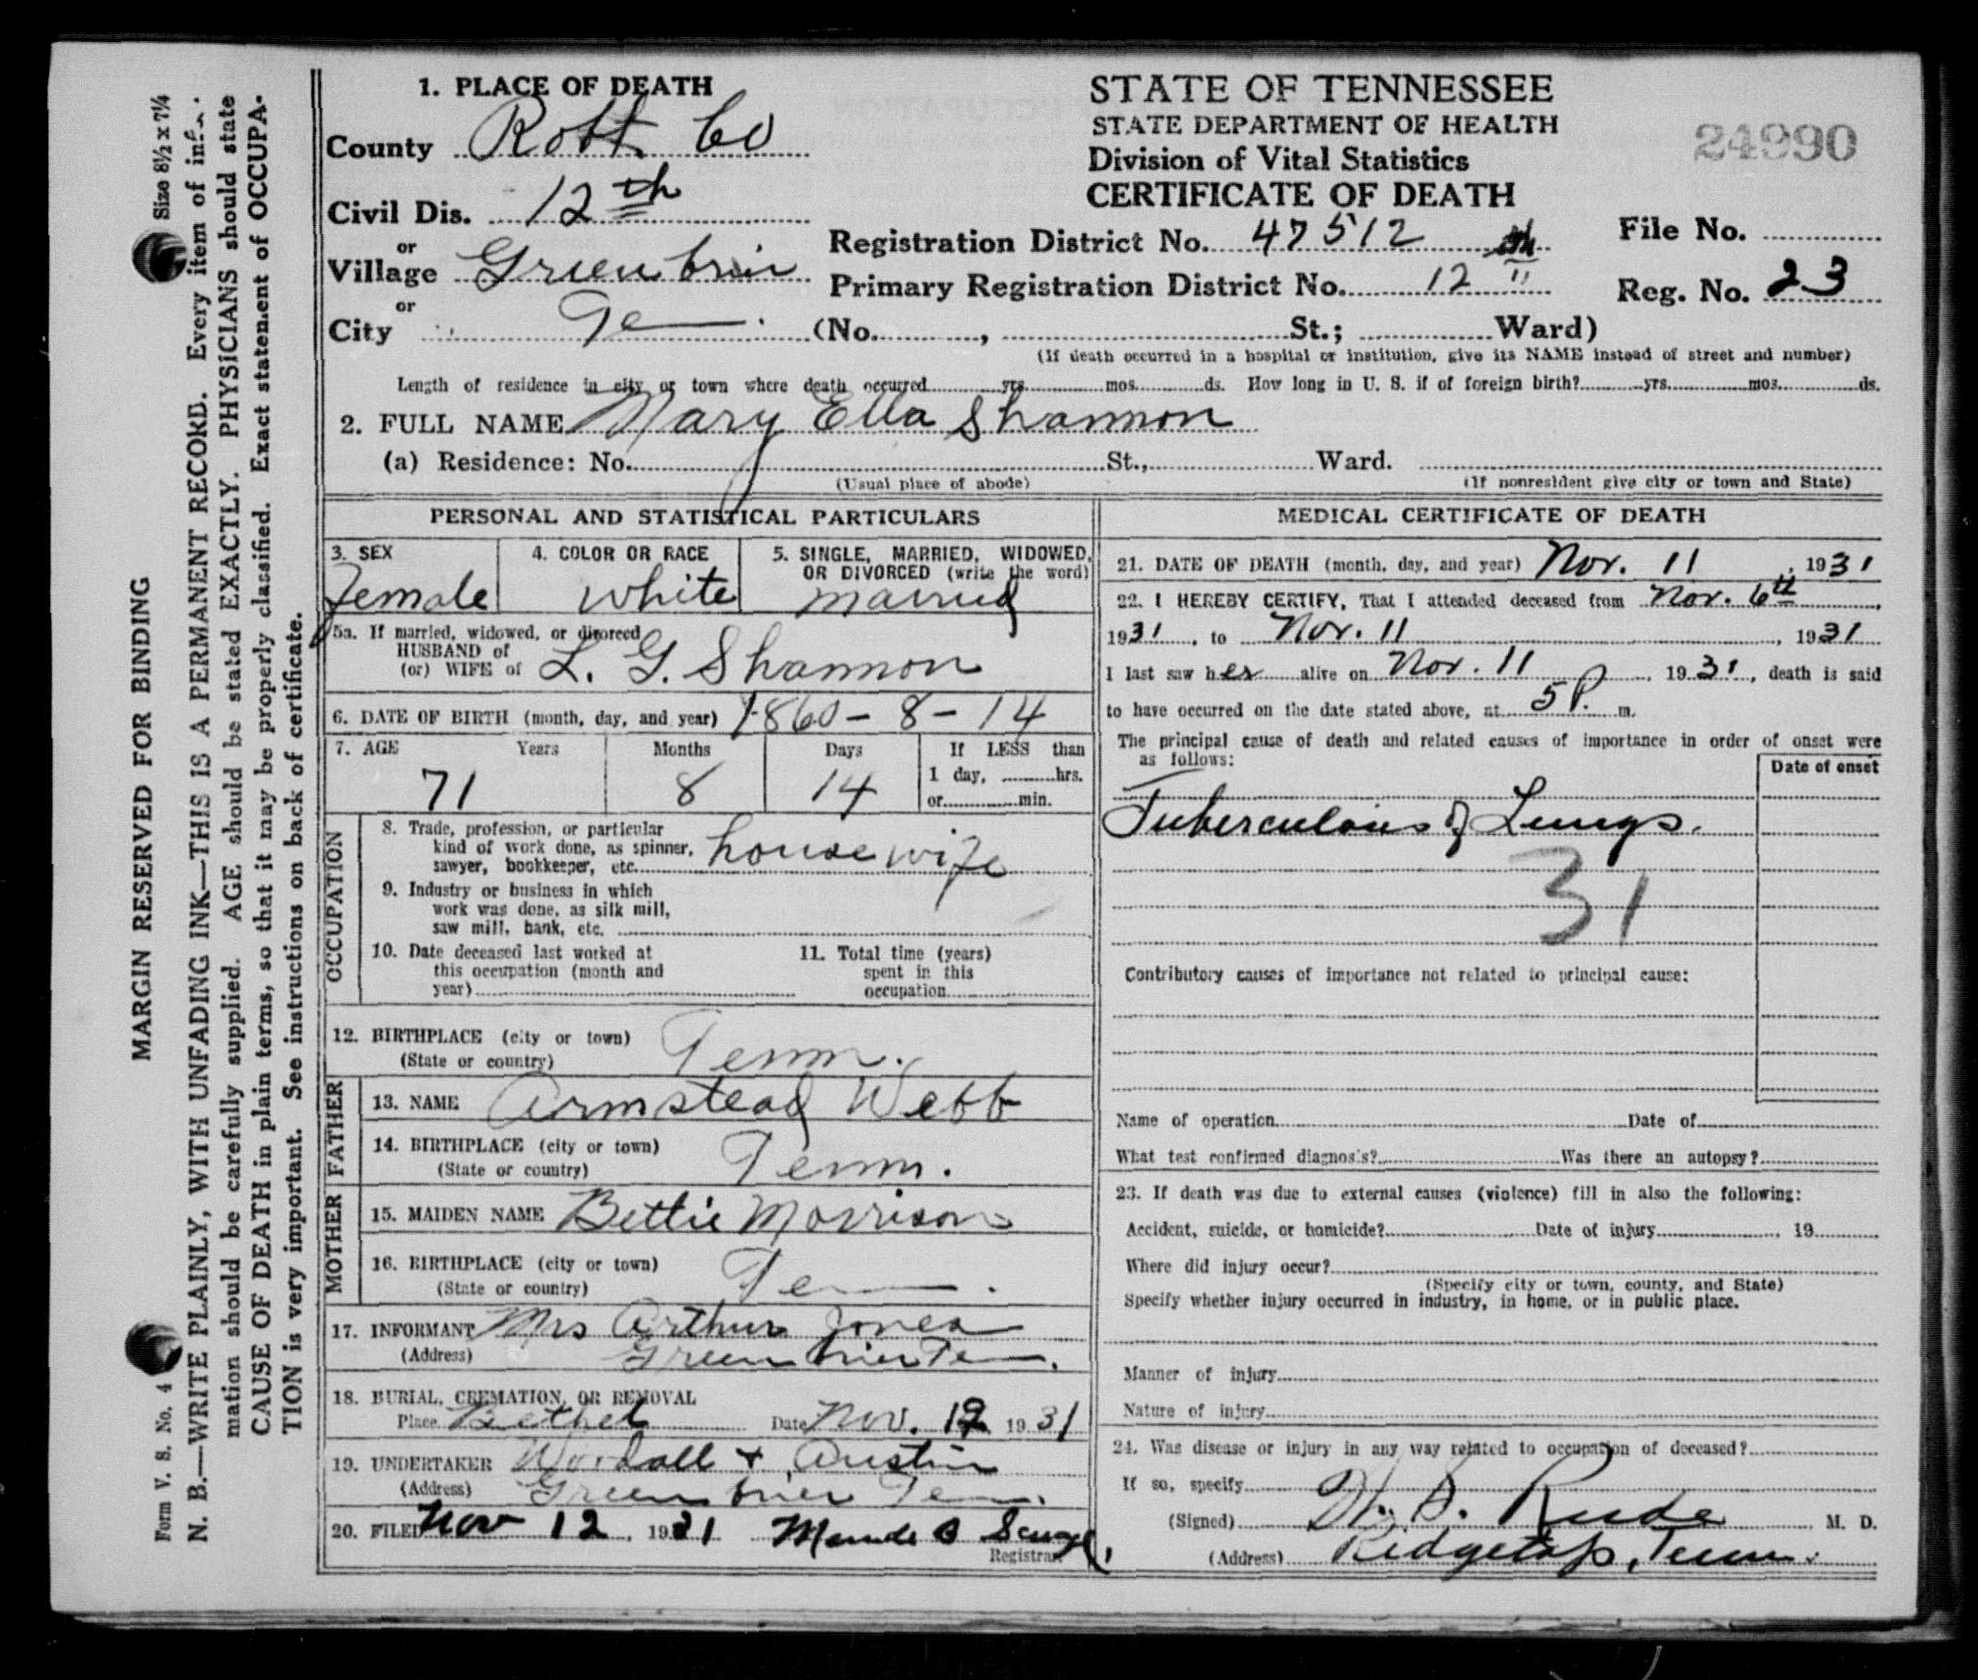 1. PLACE OF DEATH
County Robt Co
Civil Dis. 12th
or
Village Greenbrier
or
City Te
STATE OF TENNESSEE
STATE DEPARTMENT OF HEALTH
Division of Vital Statistics
CERTIFICATE OF DEATH
24990
Registration District No. 47512 th
File No.
Primary Registration District No. 12 "
Reg. No. 23
(No. , St.; Ward)
(If death occurred in a hospital or institution, give its NAME instead of street and number)
Length of residence in city or town where death occurred yrs. mos. ds. How long in U. S. if of foreign birth? yrs. mos. ds.
2. FULL NAME Mary Ella Shannon
(a) Residence: No. St., Ward.
(Usual place of abode) (If nonresident give city or town and State)
PERSONAL AND STATISTICAL PARTICULARS
3. SEX
Female
4. COLOR OR RACE
White
5. SINGLE, MARRIED, WIDOWED,
OR DIVORCED (write the word)
married
5a. If married, widowed, or divorced
HUSBAND of
(or) WIFE of L. G. Shannon
6. DATE OF BIRTH (month, day, and year) 1860 - 8 - 14
7. AGE Years Months Days If LESS than
1 day, hrs.
or min.
71 8 14
OCCUPATION
8. Trade, profession, or particular
kind of work done, as spinner,
sawyer, bookkeeper, etc. housewife
9. Industry or business in which
work was done, as silk mill,
saw mill, bank, etc.
10. Date deceased last worked at
this occupation (month and
year)
11. Total time (years)
spent in this
occupation
12. BIRTHPLACE (city or town)
(State or country) Tenn.
FATHER
13. NAME Armstead Webb
14. BIRTHPLACE (city or town)
(State or country) Tenn.
MOTHER
15. MAIDEN NAME Bettie Morrison
16. BIRTHPLACE (city or town)
(State or country) Te
17. INFORMANT Mrs Arthur Jones
(Address) Greenbrier Te
18. BURIAL, CREMATION, OR REMOVAL
Place Bethel Date Nov. 12 1931
19. UNDERTAKER Woodall + Austin
(Address) Greenbrier Te
20. FILED Nov 12, 1931 Maude B
Registrar
MEDICAL CERTIFICATE OF DEATH
21. DATE OF DEATH (month, day, and year) Nov. 11, 1931
22. I HEREBY CERTIFY, That I attended deceased from Nov. 6th,
1931, to Nov. 11, 1931
I last saw her alive on Nov. 11, 1931, death is said
to have occurred on the date stated above, at 5 P. m.
The principal cause of death and related causes of importance in order of onset were
as follows:
Date of onset
Tuberculosis of Lungs.
31
Contributory causes of importance not related to principal cause:
Name of operation Date of
What test confirmed diagnosis? Was there an autopsy?
23. If death was due to external causes (violence) fill in also the following:
Accident, suicide, or homicide? Date of injury , 19
Where did injury occur?
(Specify city or town, county, and State)
Specify whether injury occurred in industry, in home, or in public place.
Manner of injury
Nature of injury
24. Was disease or injury in any way related to occupation of deceased?
If so, specify
(Signed) Rude M. D.
(Address) Ridgetop, Tenn.
MARGIN RESERVED FOR BINDING
Form V. S. No. 4 Size 8½ x 7¼
N. B.—WRITE PLAINLY, WITH UNFADING INK—THIS IS A PERMANENT RECORD. Every item of infor-
mation should be carefully supplied. AGE should be stated EXACTLY. PHYSICIANS should state
CAUSE OF DEATH in plain terms, so that it may be properly classified. Exact statement of OCCUPA-
TION is very important. See instructions on back of certificate.